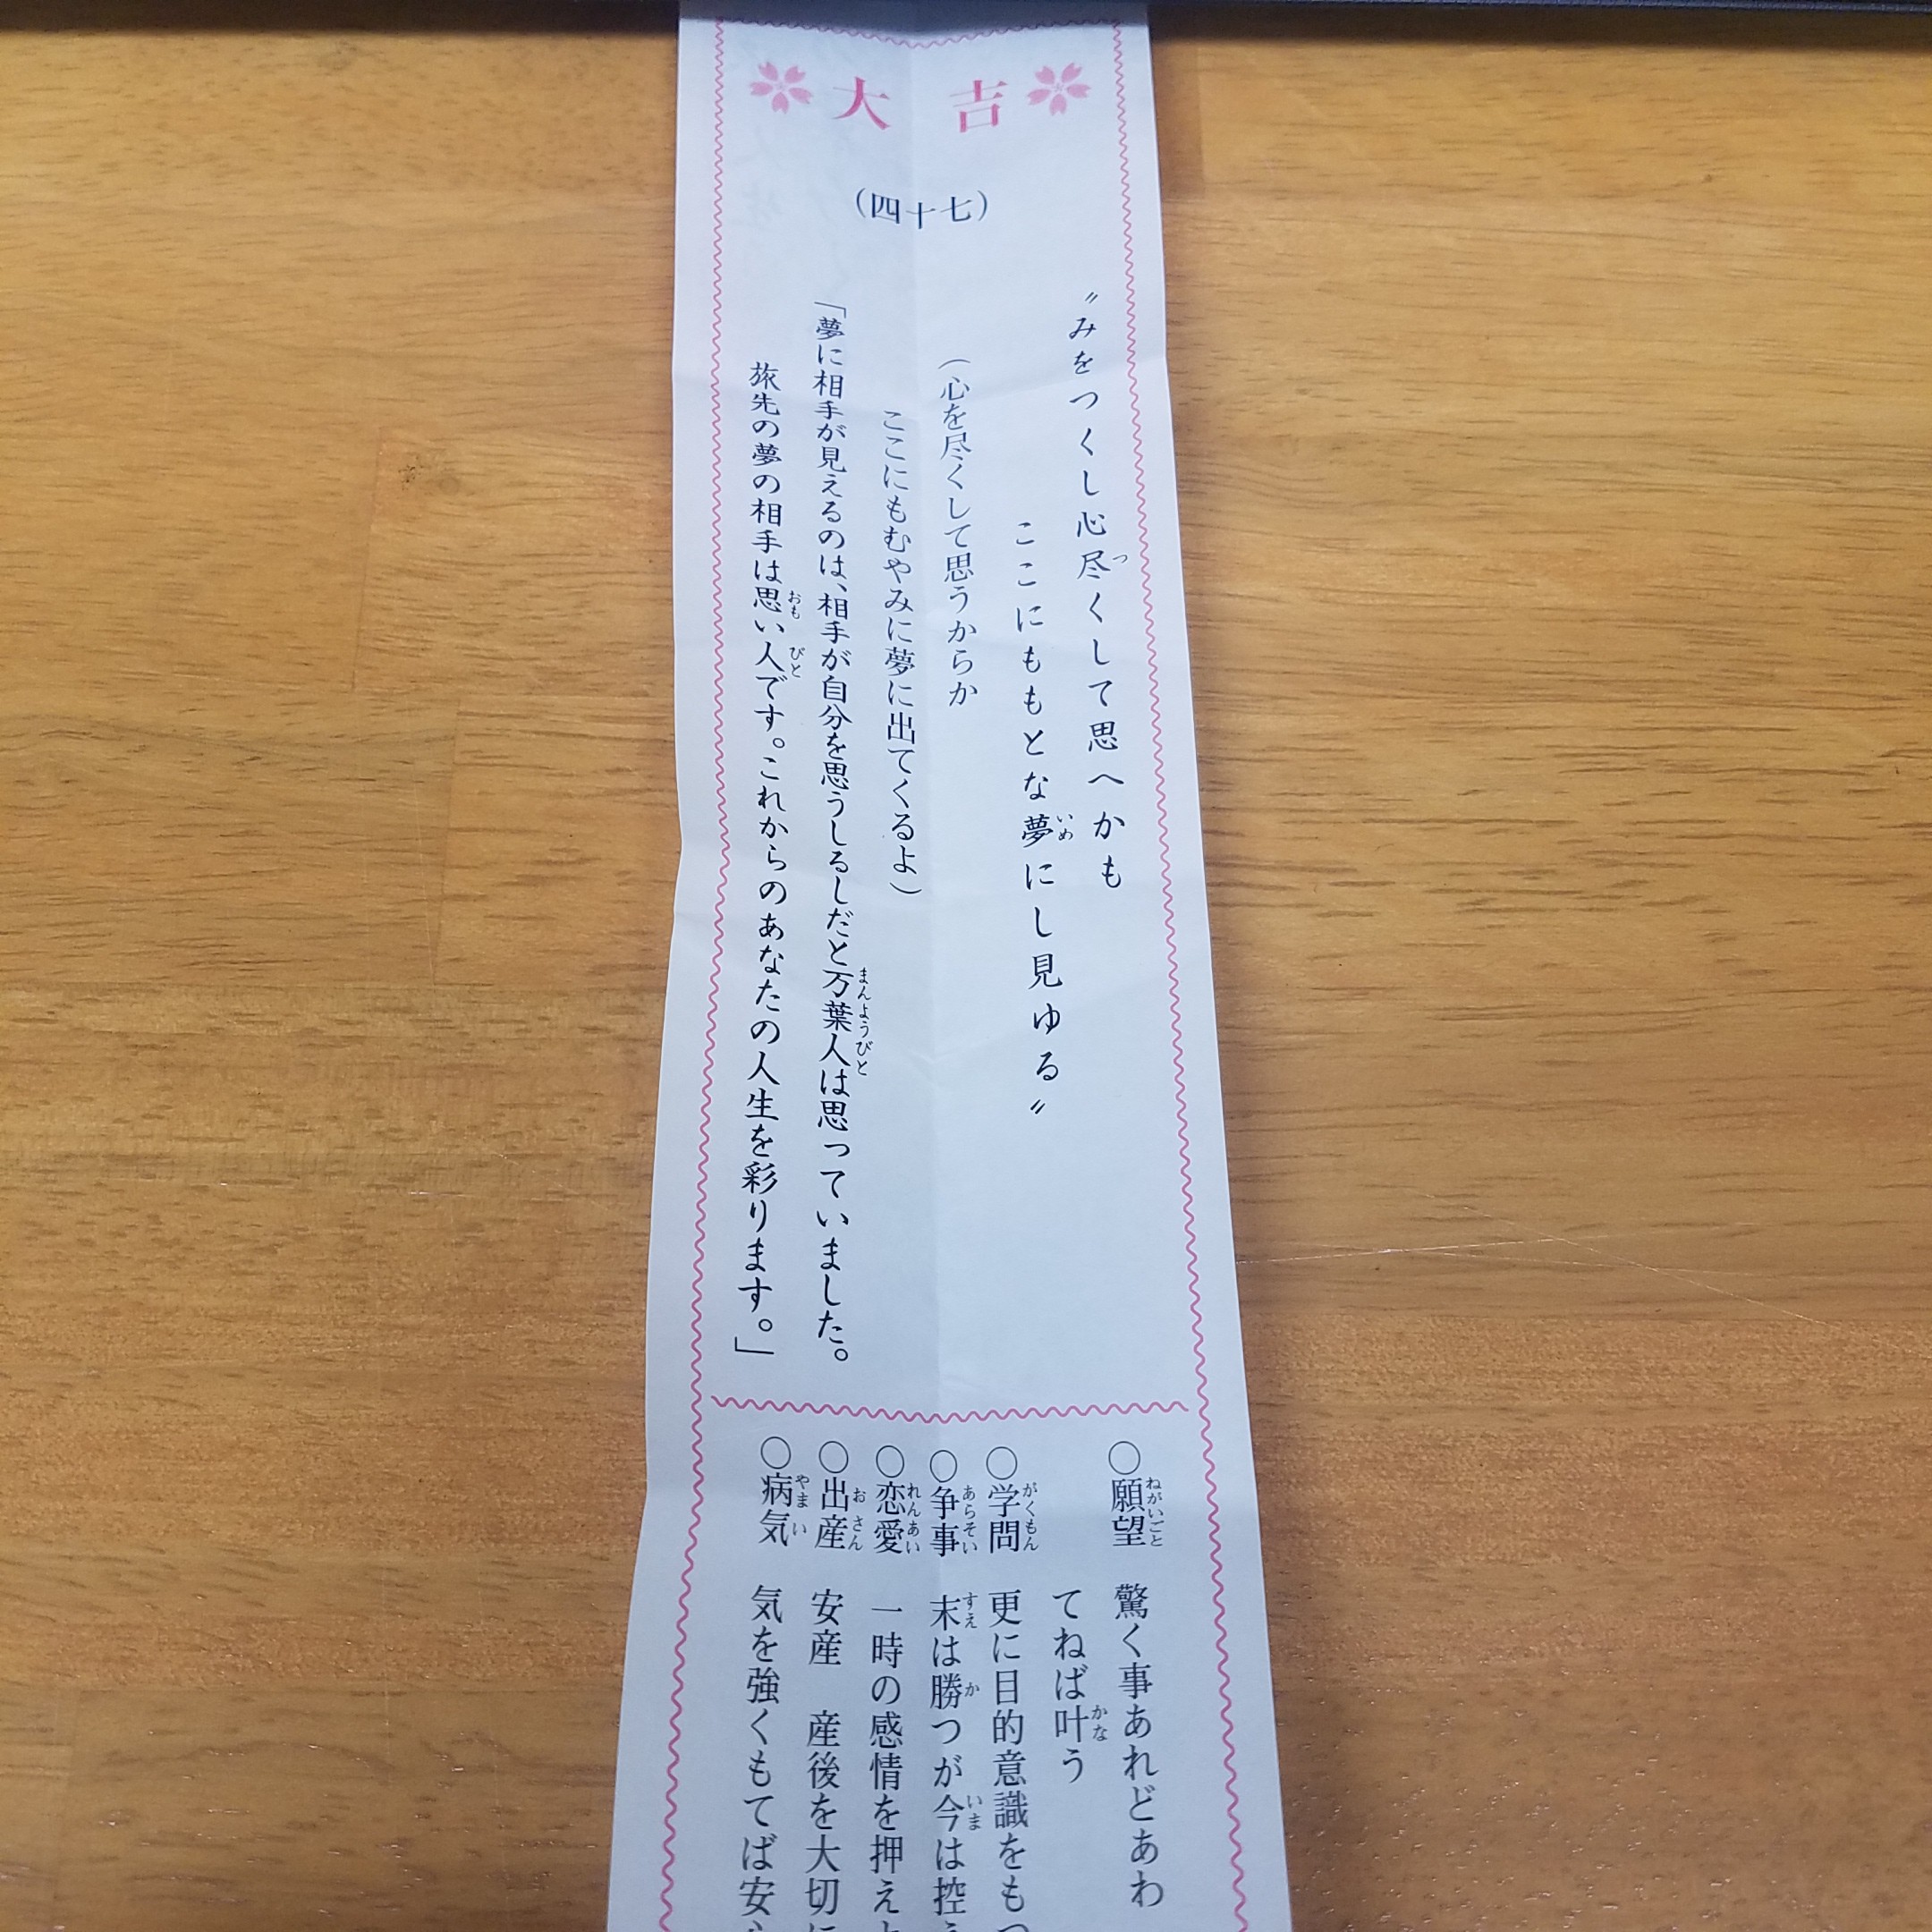 大吉
(四十七)
〝みをつくし心尽くして思へかも
ここにももとな夢にし見ゆる〟
(心を尽くして思うからか
ここにもむやみに夢に出てくるよ)
「夢に相手が見えるのは、相手が自分を思うしるしだと万葉人は思っていました。
旅先の夢の相手は思い人です。これからのあなたの人生を彩ります。」
○願望 驚く事あれどあわ
てねば叶う
○学問 更に目的意識をも
○争事 末は勝つが今は控
○恋愛 一時の感情を押え
○出産 安産 産後を大切に
○病気 気を強くもてば安